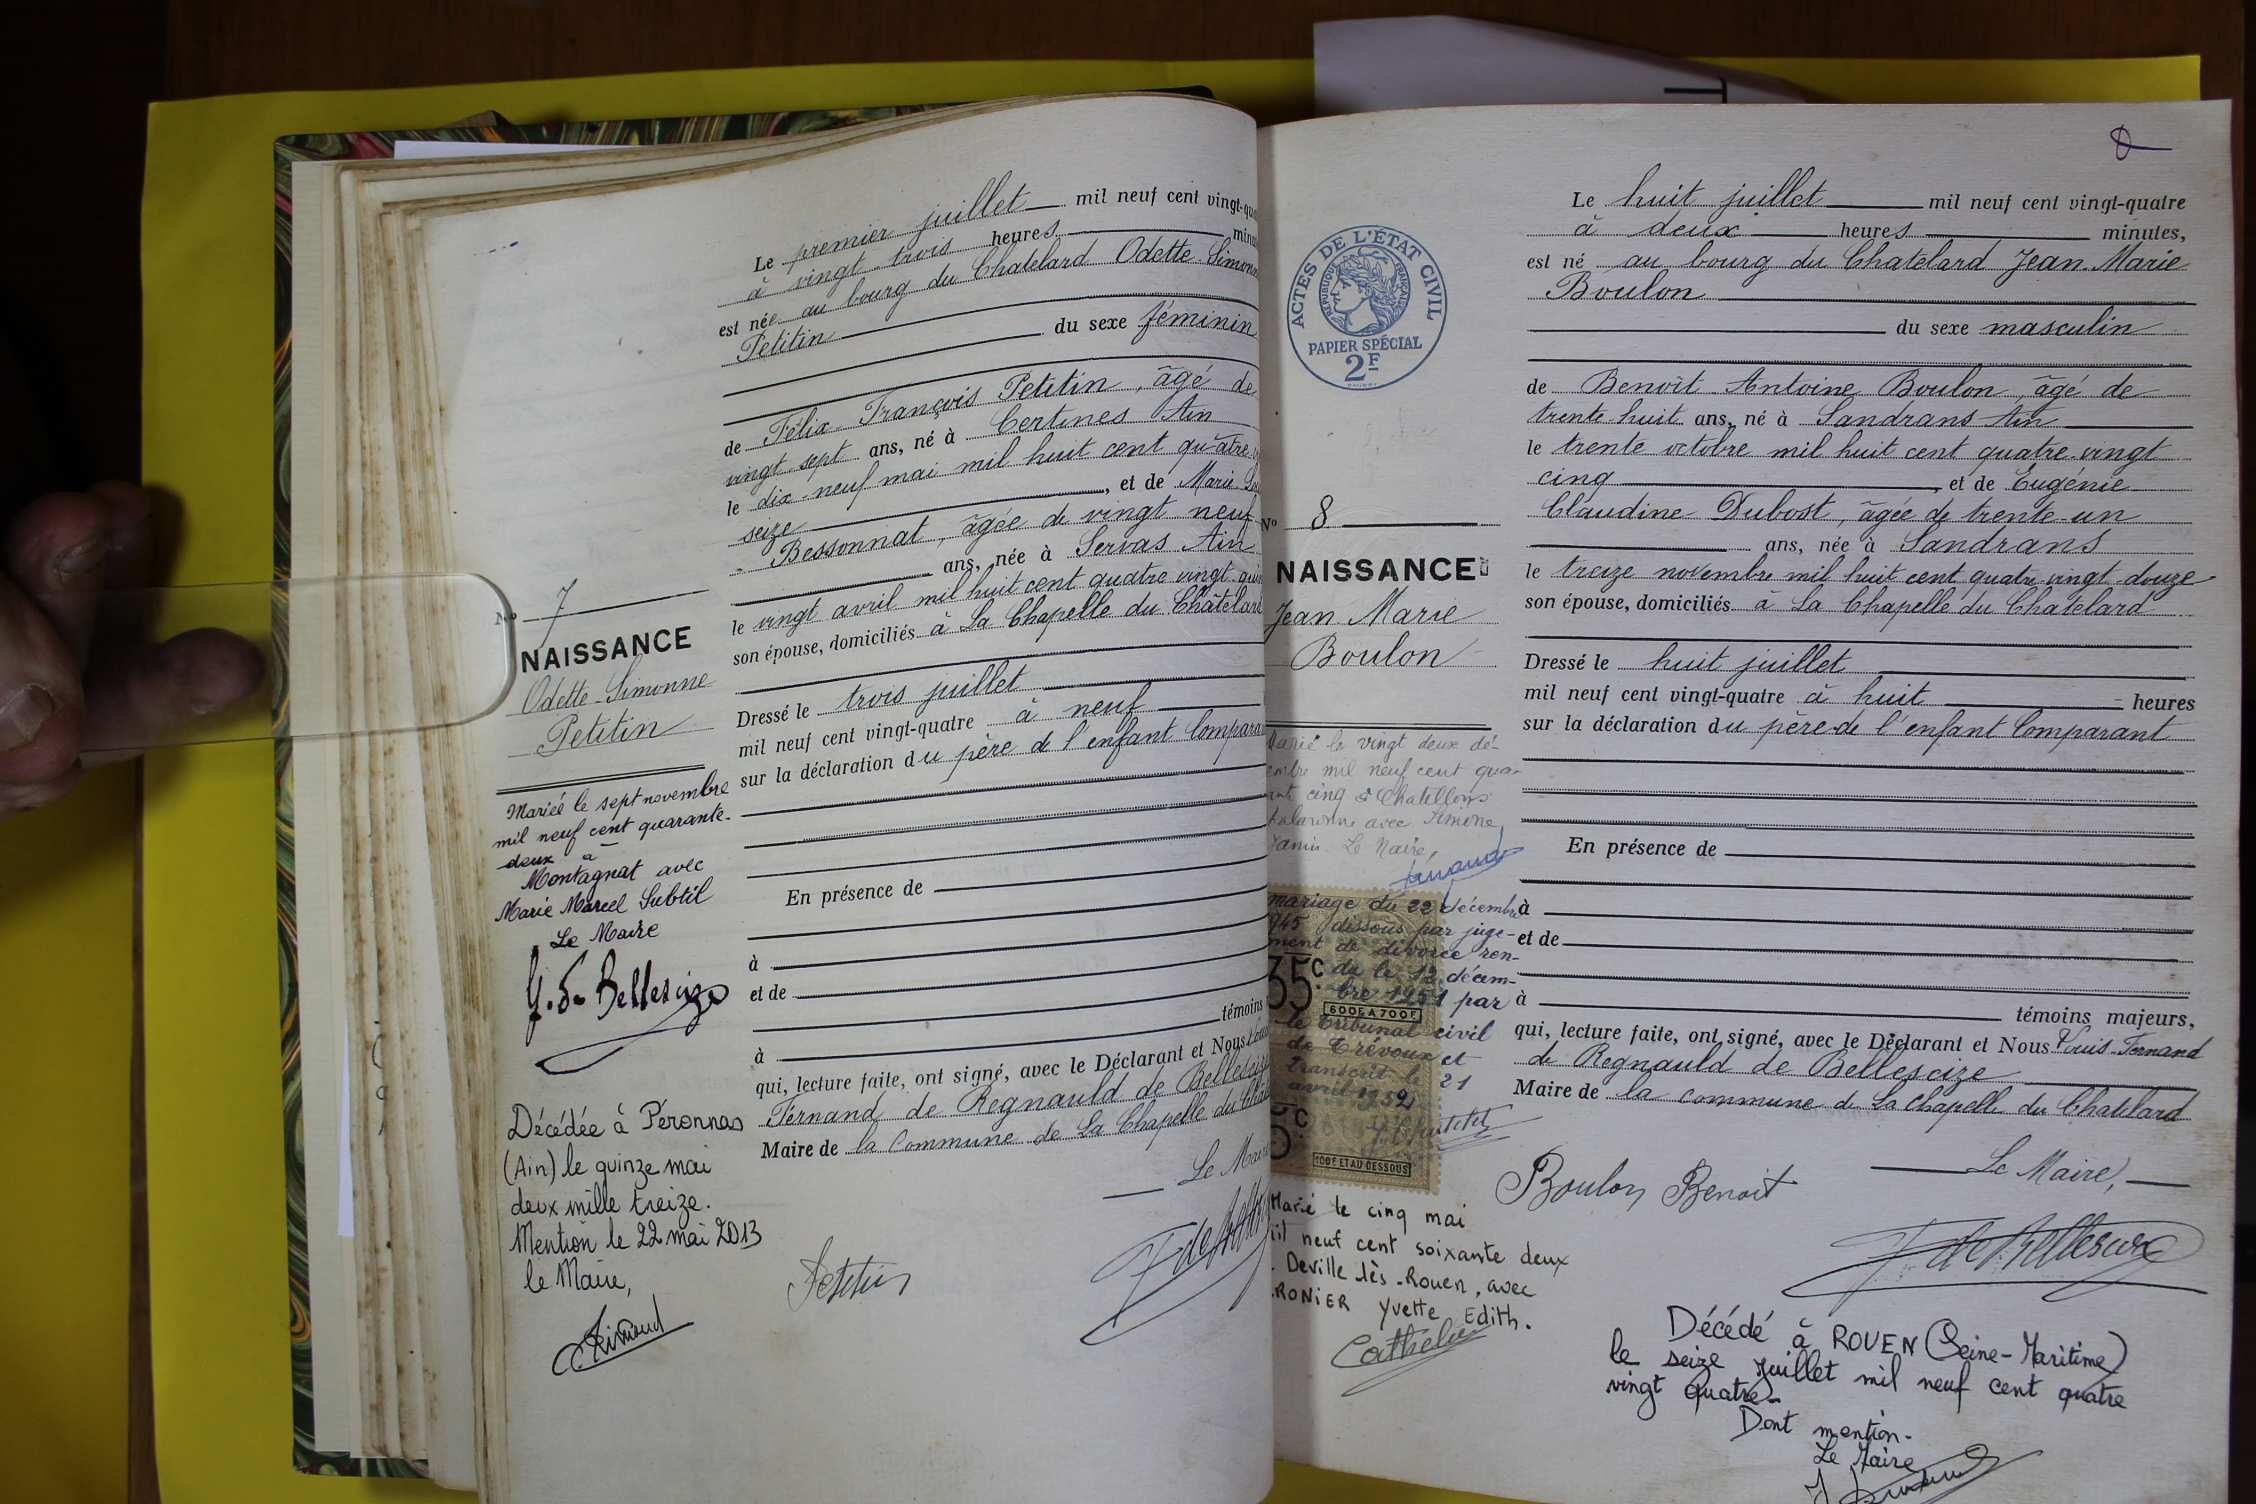 Le premier juillet mil neuf cent vingt-qua
à vingt-trois heures minu
est née au bourg du Chatelard Odette Simon
Petitin
du sexe féminin
de Félix François Petitin, âgé de
vingt-sept ans, né à Certines Ain
le dix-neuf mai mil huit cent quatre
seize, et de Marie
Bessonnat, âgée de vingt neuf
ans, née à Servas Ain
le vingt avril mil huit cent quatre vingt
son épouse, domiciliés à La Chapelle du Châtelard
Dressé le trois juillet
mil neuf cent vingt-quatre à neuf
sur la déclaration du père de l'enfant Compara
En présence de
à
et de
témoins
à
qui, lecture faite, ont signé, avec le Déclarant et Nous
Fernand de Regnauld de Bellescize
Maire de la Commune de La Chapelle du
Le Maire
Petitin
N° 7
NAISSANCE
Odette-Simonne
Petitin
Mariée le sept novembre
mil neuf cent quarante-
deux à
Montagnat avec
Marie Marcel Subtil
Le Maire
Bellescize
Décédée à Péronnas
(Ain) le quinze mai
deux mille treize.
Mention le 22 mai 2013
le Maire,
ACTES DE L'ÉTAT CIVIL
RÉPUBLIQUE FRANÇAISE
PAPIER SPÉCIAL
2F
N° 8
NAISSANCE
Jean Marie
Boulon
Marié le vingt deux dé-
embre mil neuf cent qua-
ante cinq à Chatillon s
halaronne avec Simone
Le Maire,
mariage du 22 décembre
945 dissous par juge-
ment de divorce ren-
du le 12 décem-
bre 1951 par
le Tribunal civil
de Trévoux et
transcrit le 21
avril 1952
35c
600F A 700F
5c
100F ET AU DESSOUS
Marié le cinq mai
il neuf cent soixante deux
Deville lès-Rouen, avec
RONIER Yvette Edith.
8
Le huit juillet mil neuf cent vingt-quatre
à deux heures minutes,
est né au bourg du Chatelard Jean-Marie
Boulon
du sexe masculin
de Benoît Antoine Boulon, âgé de
trente-huit ans, né à Sandrans Ain
le trente octobre mil huit cent quatre-vingt
cinq, et de Eugénie
Claudine Dubost, âgée de trente-un
ans, née à Sandrans
le treize novembre mil huit cent quatre vingt-douze
son épouse, domiciliés à La Chapelle du Chatelard
Dressé le huit juillet
mil neuf cent vingt-quatre à huit heures
sur la déclaration du père de l'enfant Comparant
En présence de
à
et de
à
témoins majeurs,
qui, lecture faite, ont signé, avec le Déclarant et Nous Louis-Fernand
de Regnauld de Bellescize
Maire de la commune de La Chapelle du Chatelard
Le Maire,
Boulon Benoit
F de Bellescize
Décédé à ROUEN (Seine-Maritime)
le seize juillet mil neuf cent quatre
vingt quatre.
Dont mention.
Le Maire